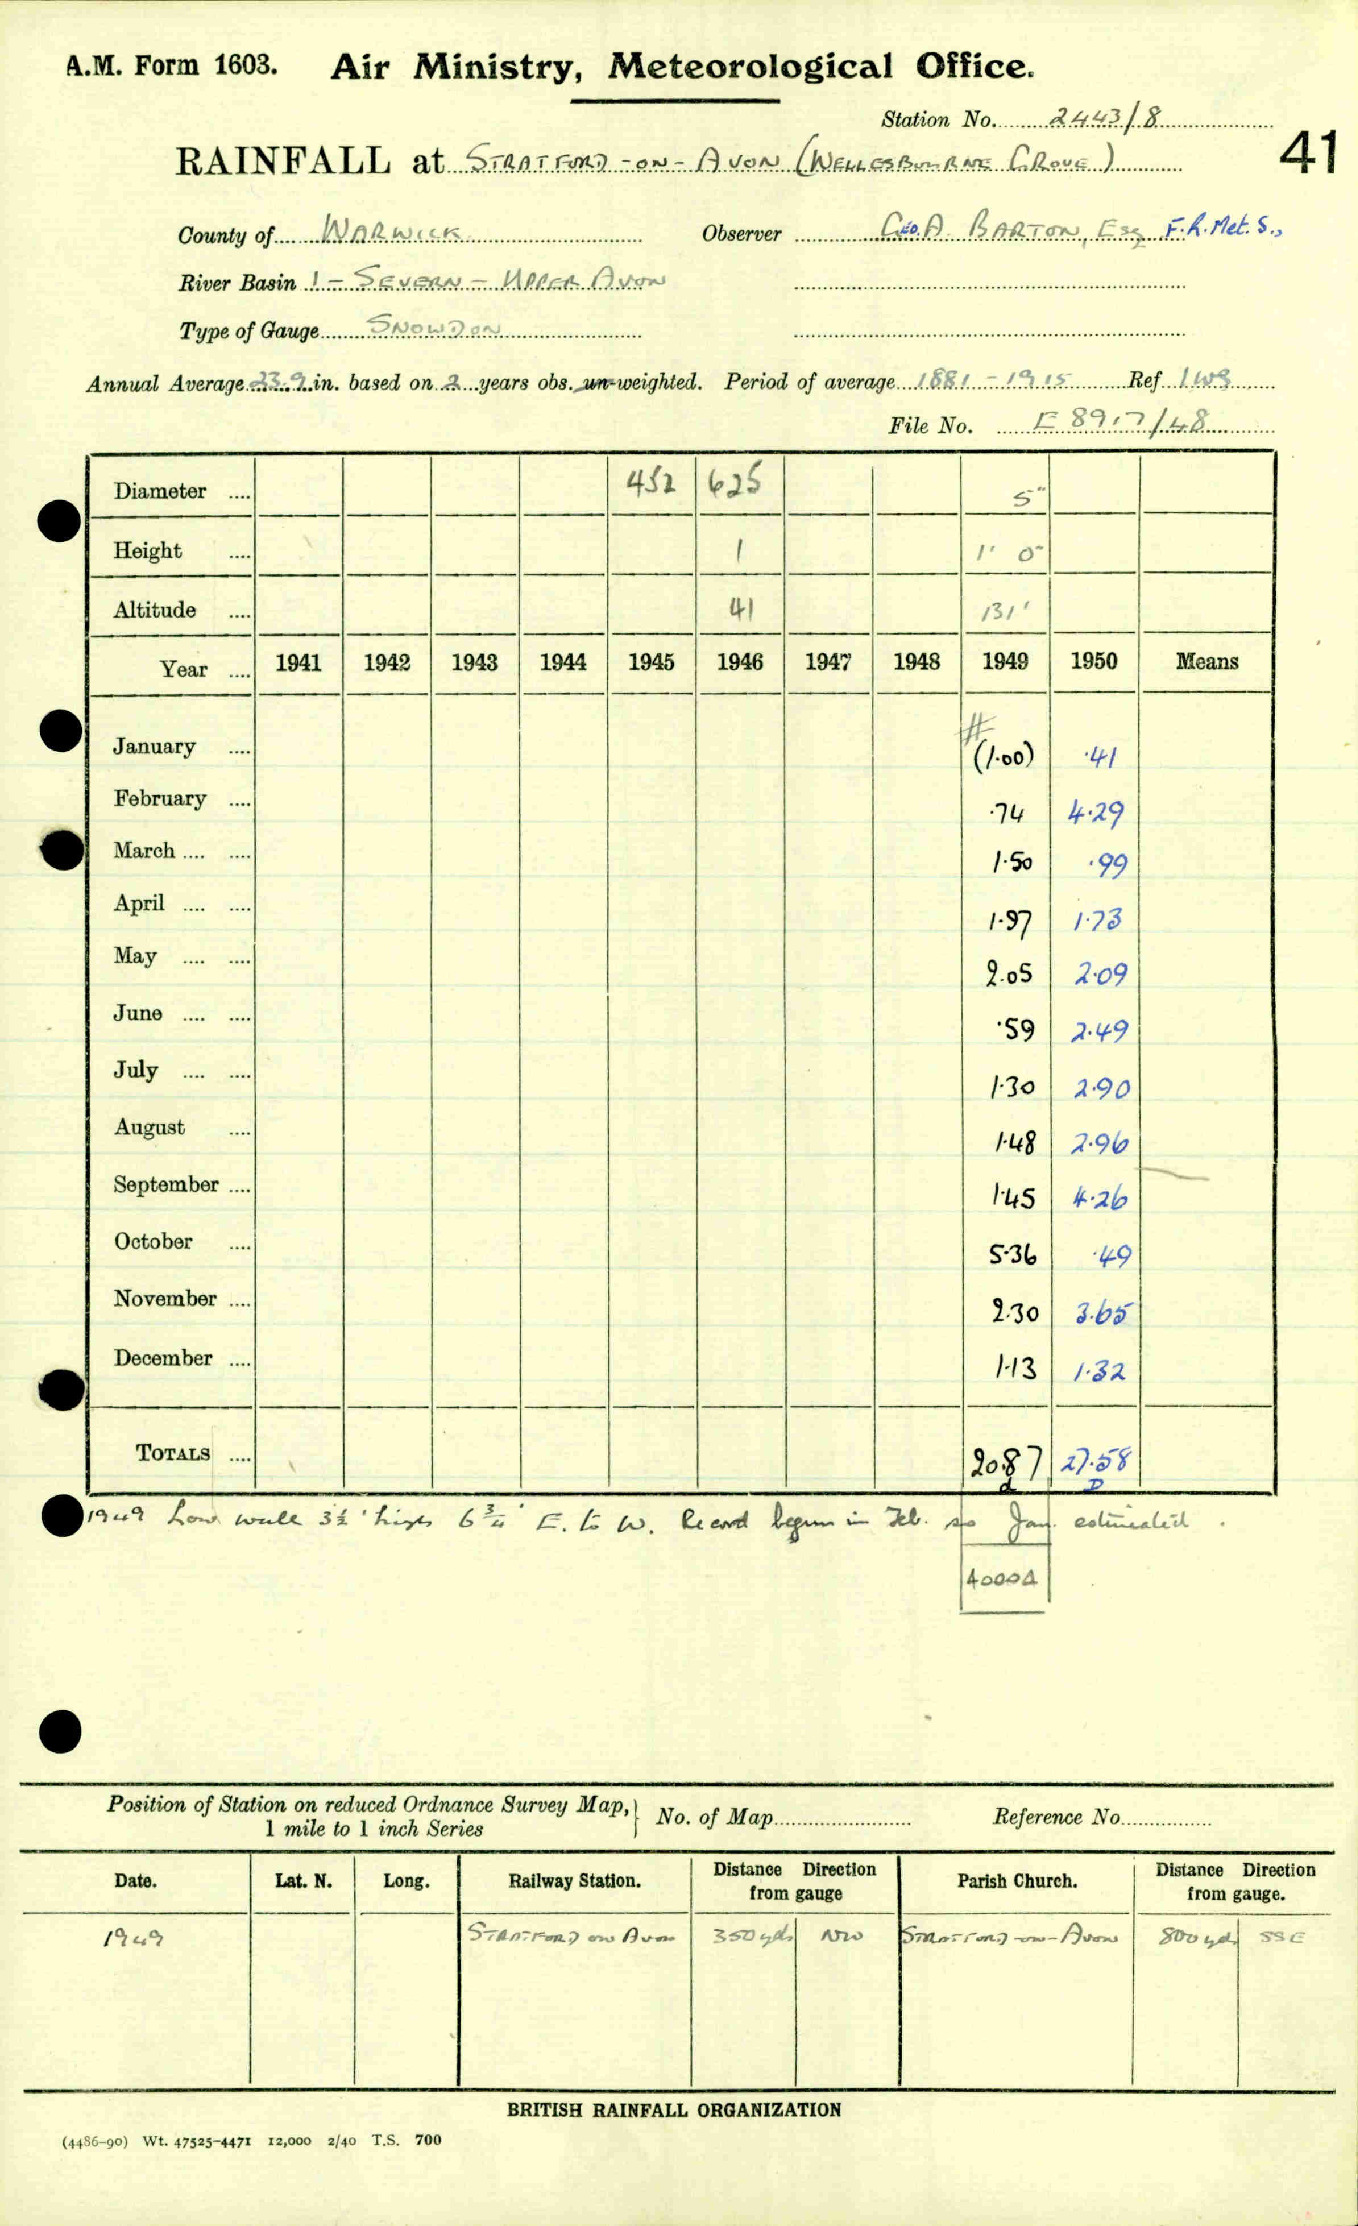 A.M. Form 1603. Air Ministry, Meteorological Office.
Station No. 2443/8
41
RAINFALL at STRATFORD-ON-AVON (WELLESBOURNE GROVE)
County of WARWICK Observer GEO. A. BARTON, Esq F.R.Met.S.,
River Basin 1 - SEVERN - UPPER AVON
Type of Gauge SNOWDON
Annual Average 23.9 in. based on 2 years obs. un-weighted. Period of average 1881-1915 Ref
File No. E 8917/48
Diameter .... 452 625 5"
Height .... 1 1' 0"
Altitude .... 41 131'
Year .... 1941 1942 1943 1944 1945 1946 1947 1948 1949 1950 Means
#
January .... (1.00) .41
February .... .74 4.29
March .... .... 1.50 .99
April .... .... 1.97 1.73
May .... .... 2.05 2.09
June .... .... .59 2.49
July .... .... 1.30 2.90
August .... 1.48 2.96
September .... 1.45 4.26
October .... 5.36 .49
November .... 2.30 3.65
December .... 1.13 1.32
TOTALS .... 20.87 27.58
d D
1949 Low wall 3½' high 6¾' E. to W. Record began in Feb. so Jan. estimated.
4000A
Position of Station on reduced Ordnance Survey Map, } No. of Map Reference No.
1 mile to 1 inch Series
Date. Lat. N. Long. Railway Station. Distance Direction from gauge Parish Church. Distance Direction from gauge.
1949 STRATFORD on AVON 350 yds NW STRATFORD-on-AVON 800 yds SSE
BRITISH RAINFALL ORGANIZATION
(4486-90) Wt. 47525-4471 12,000 2/40 T.S. 700